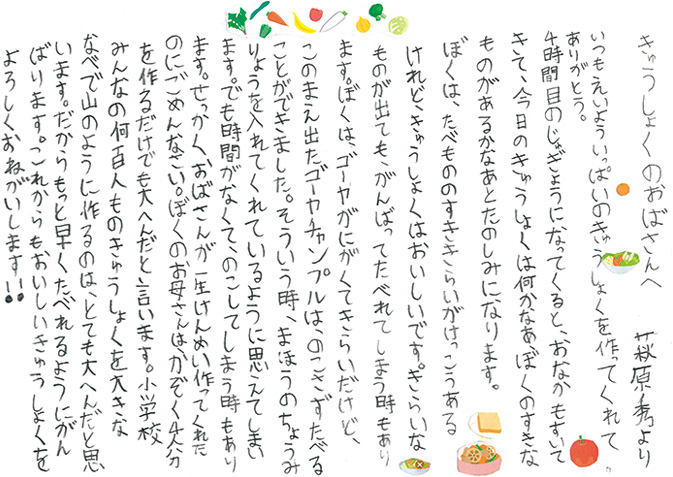 きゅうしょくのおばさんへ　萩原秀より
いつもえいよういっぱいのきゅうしょくを作ってくれて、
ありがとう。
4時間目のじゅぎょうになってくると、おなかもすいて
きて、今日のきゅうしょくは何かなあぼくのすきな
ものがあるかなあとたのしみになります。
ぼくは、たべもののすききらいがけっこうある
けれど、きゅうしょくはおいしいです。きらいな
ものが出ても、がんばってたべれてしまう時もあり
ます。ぼくは、ゴーヤがにがくてきらいだけど、
このまえ出たゴーヤチャンプルは、のこさずたべる
ことができました。そういう時、まほうのちょうみ
りょうを入れてくれているように思えてしまい
ます。でも時間がなくて、のこしてしまう時もあり
ます。せっかく、おばさんが一生けんめい作ってくれた
のにごめんなさい。ぼくのお母さんは、かぞく4人分
を作るだけでも大へんだと言います。小学校
みんなの何百人ものきゅうしょくを大きな
なべで山のように作るのは、とても大へんだと思
います。だからもっと早くたべれるようにがん
ばります。これからもおいしいきゅうしょくを
よろしくおねがいします!!